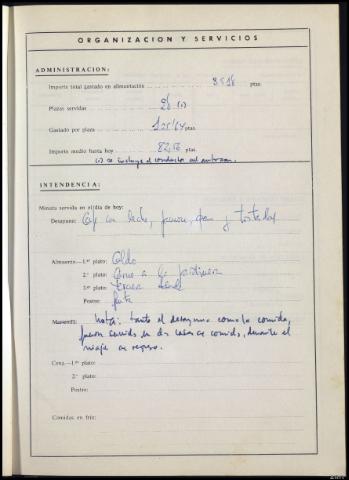 ORGANIZACION Y SERVICIOS
ADMINISTRACION:
Importe total gastado en alimentación ptas.
Plazas servidas 28 (1)
Gastado por plaza ptas.
Importe medio hasta hoy ptas.
(1) se incluye el conductor del autocar.
INTENDENCIA:
Minuta servida en el día de hoy:
Desayuno: Café con leche, pan y tostadas
Almuerzo—1.er plato: Caldo
2.º plato: Carne a la jardinera
3.er plato:
Postre: fruta
Merienda: Nota: tanto el desayuno como la comida,
fueron servidos en dos casas de comidas, durante el
viaje de regreso.
Cena.—1.er plato:
2.º plato:
Postre:
Comidas en frío: